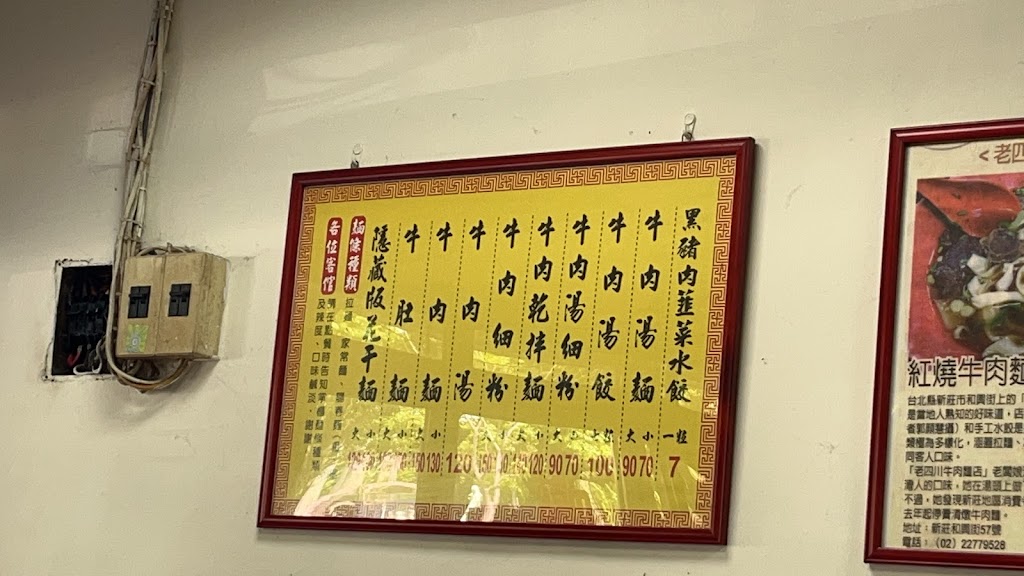 黑豬肉韮菜水餃 一粒 7
牛肉湯麵 大 小 90 70
牛肉湯餃 100
牛肉湯細粉 大 小 90 70
牛肉乾拌麵 大 小 120
牛肉細粉 小
牛肉湯 120
牛肉麵 大 小 130
牛肚麵 大 小
隱藏版花干麵 大 小
麵條種類
各位客倌
及辣度、口味鹹淡。謝謝
<老四
紅燒牛肉麵
台北縣新莊市和興街上的
是當地人熟知的好味道,店
同客人口味。
「老四川牛肉麵店」老闆娘
灣人的口味,她在湯頭上做
不過,她發現新莊地區消費
去年起停賣清燉牛肉麵。
地址:新莊和興街57號
電話:(02)22779528